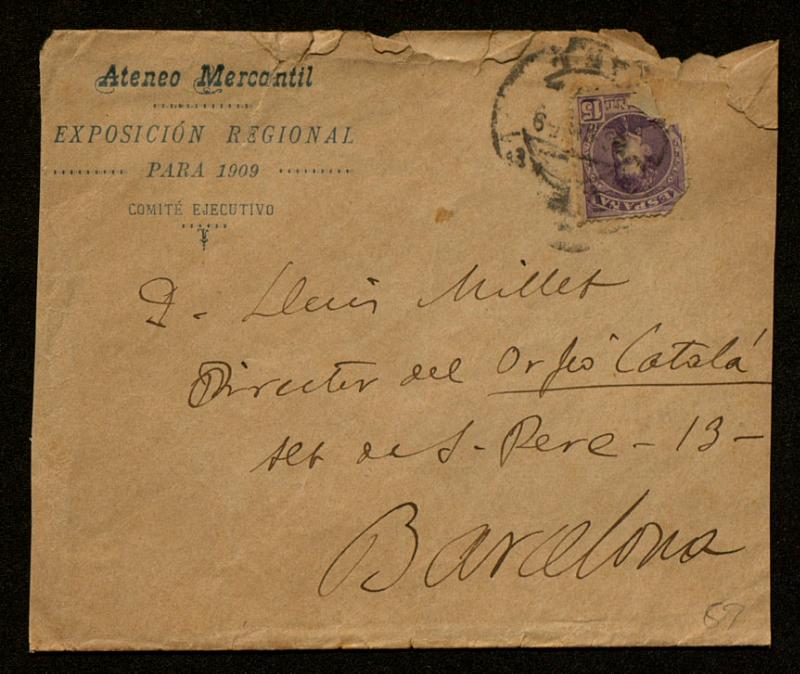 Ateneo Mercantil
EXPOSICIÓN REGIONAL
PARA 1909
COMITÉ EJECUTIVO
15
ESPAÑA
D. Lluis Millet
Director del Orfeó Catalá
Alt de S. Pere - 13 -
Barcelona
57